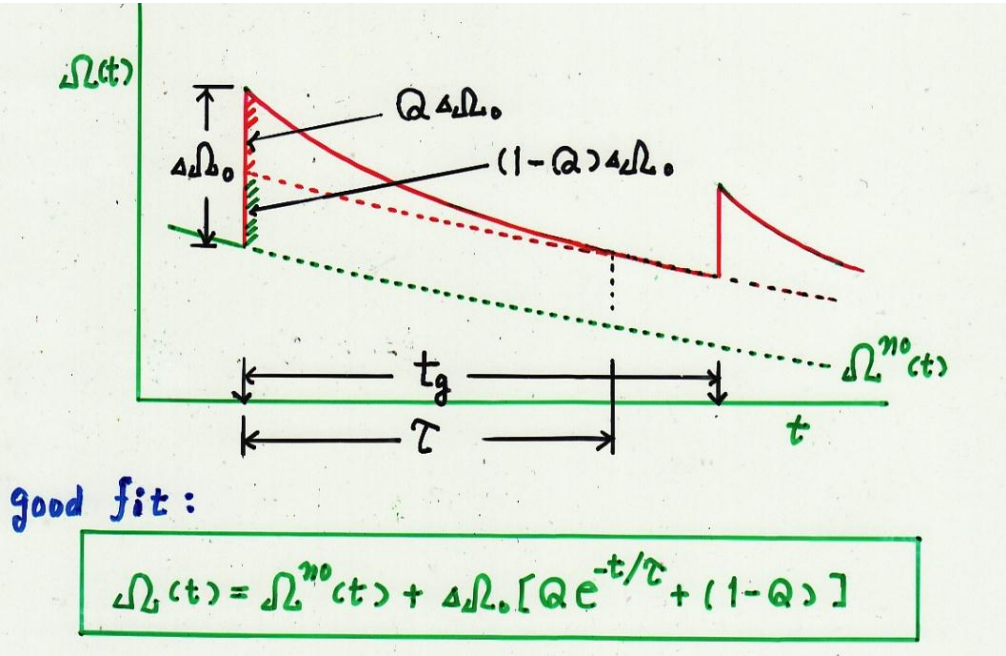 Ω(t)
QΔΩ₀
ΔΩ₀
(1-Q)ΔΩ₀
Ωⁿᵒ(t)
t_g
τ
t
good fit:
Ω(t) = Ωⁿᵒ(t) + ΔΩ₀[Qe^{-t/τ} + (1-Q)]